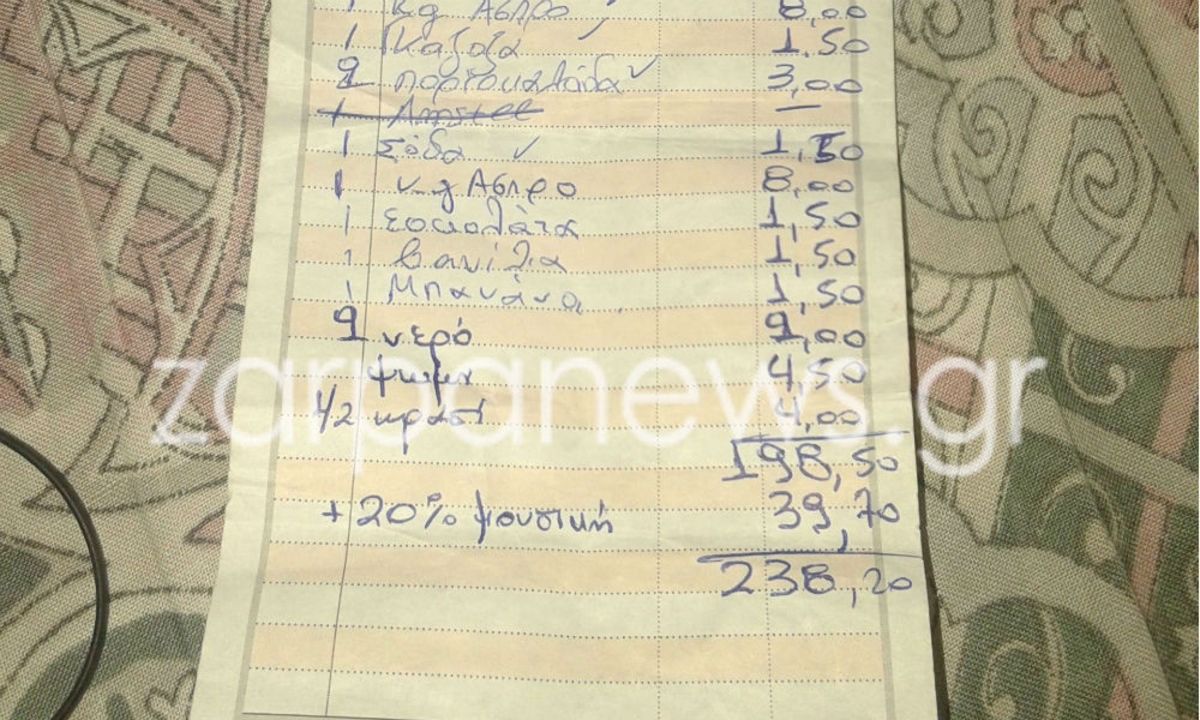 1 Kg Ασπρο 8,00
1 Γκαζοζα 1.50
2 πορτοκαλάδα ✓ 3,00
1 Amstel —
1 Σόδα ✓ 1,50
1 Kg Ασπρο 8,00
1 Σοκολάτα 1,50
1 βανίλια 1,50
1 Μπανάνα 1,50
2 νερό 2,00
ψωμι 4,50
1/2 κρασί 4,00
198,50
+20% μουσική 39,70
238,20
zarpanews.gr